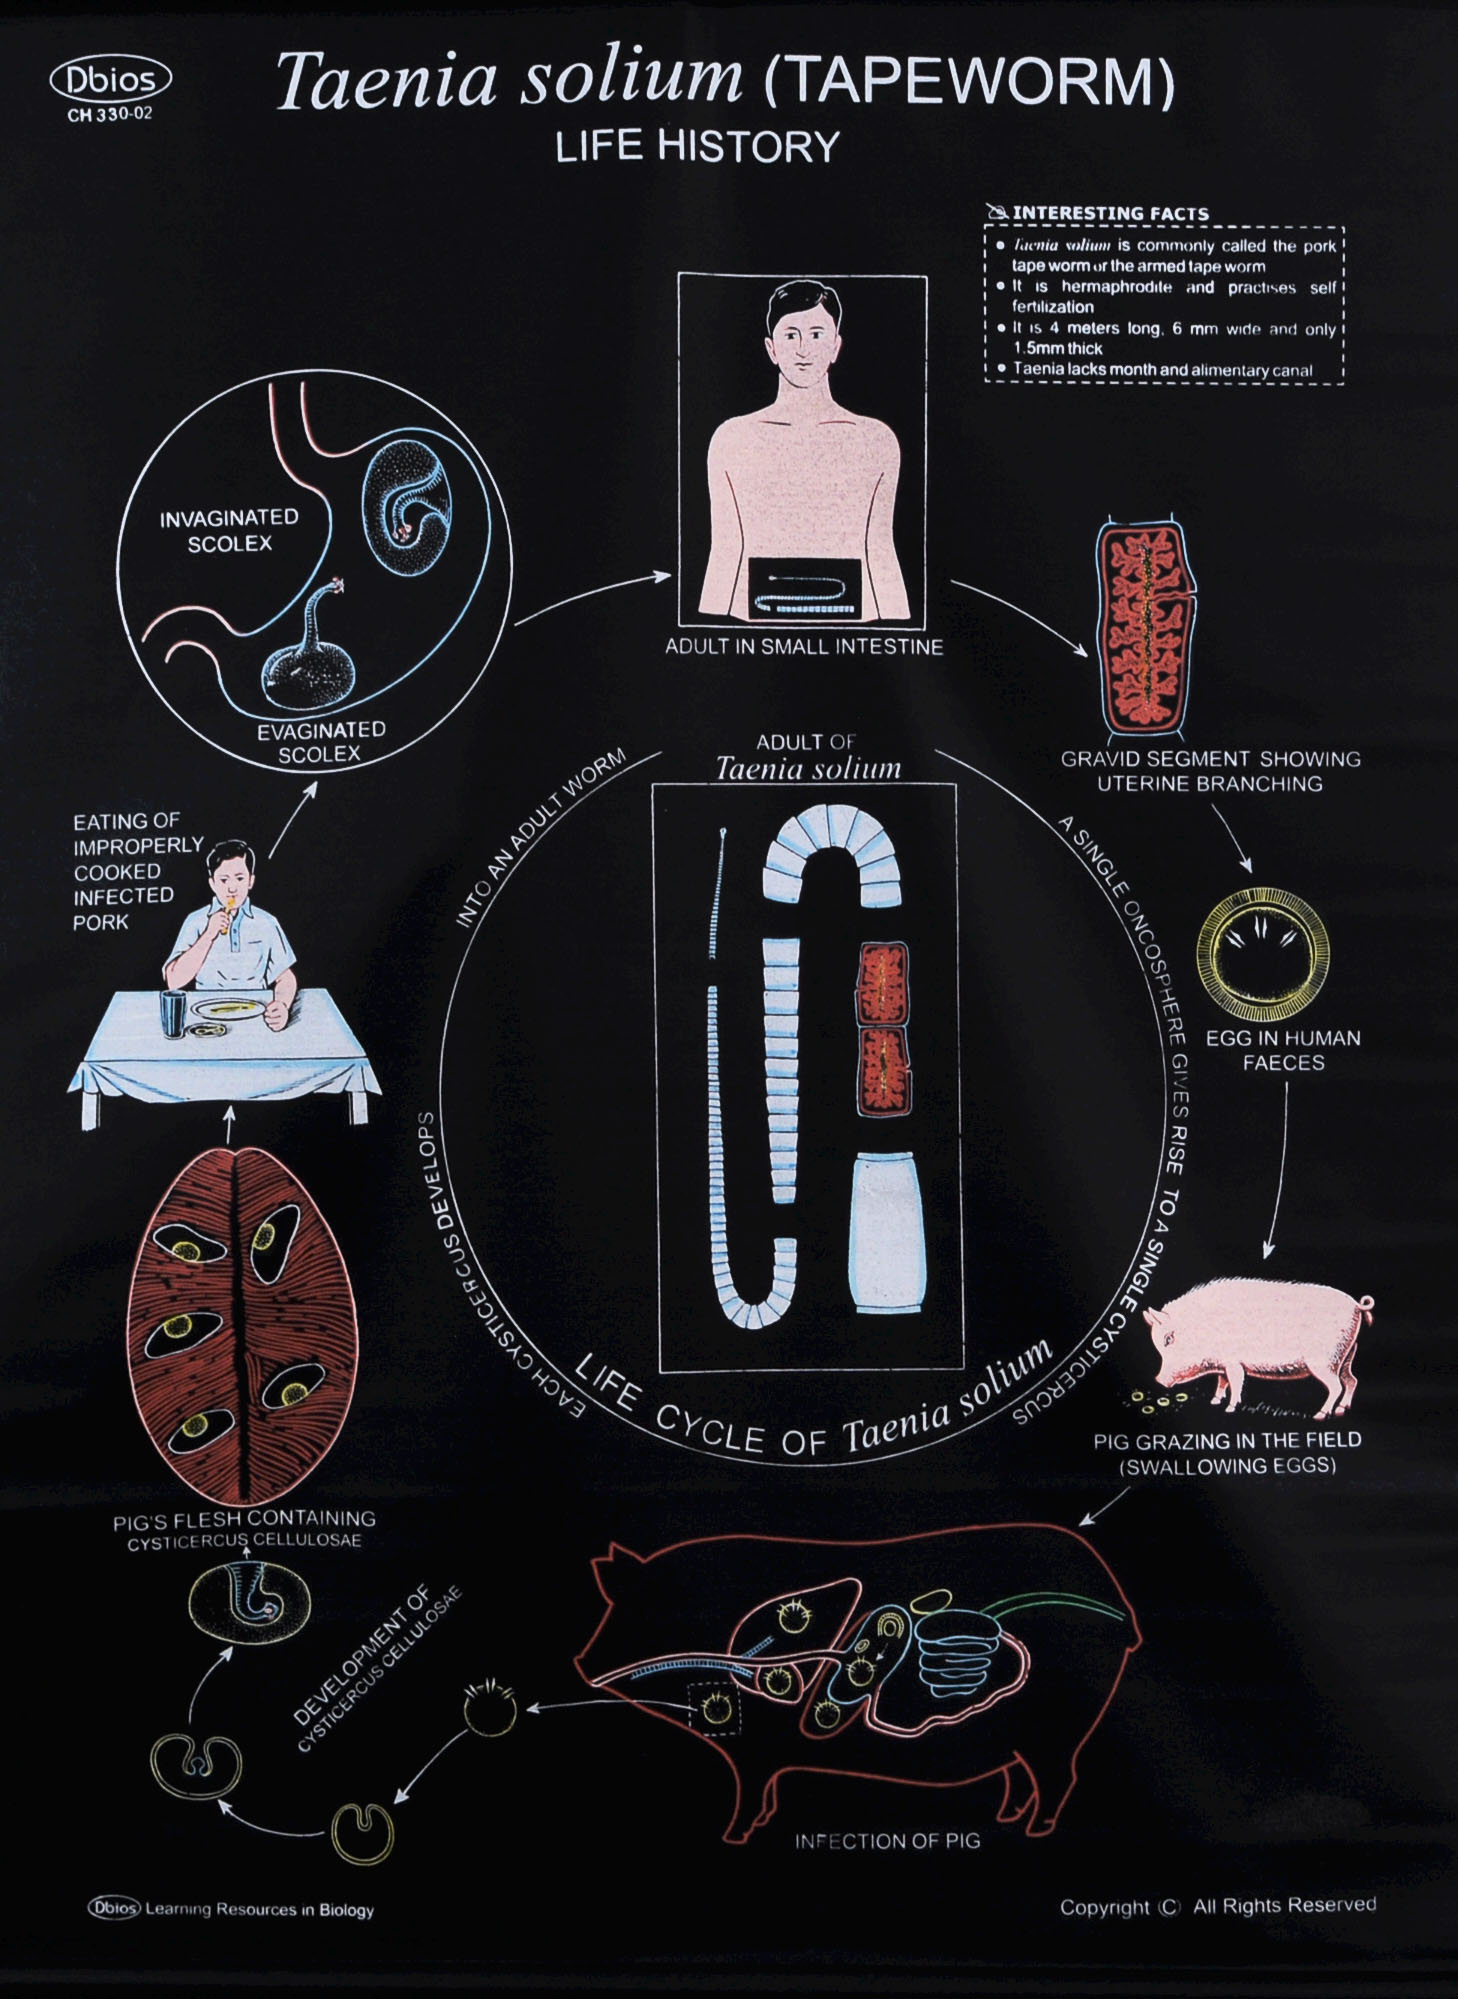 Dbios
CH 330-02
Taenia solium (TAPEWORM)
LIFE HISTORY
INTERESTING FACTS
• Taenia solium is commonly called the pork
tape worm or the armed tape worm
• It is hermaphrodite and practises self
fertilization
• It is 4 meters long, 6 mm wide and only
1.5mm thick
• Taenia lacks month and alimentary canal
INVAGINATED
SCOLEX
EVAGINATED
SCOLEX
ADULT IN SMALL INTESTINE
GRAVID SEGMENT SHOWING
UTERINE BRANCHING
ADULT OF
Taenia solium
EATING OF
IMPROPERLY
COOKED
INFECTED
PORK
EACH CYSTICERCUS DEVELOPS INTO AN ADULT WORM
A SINGLE ONCOSPHERE GIVES RISE TO A SINGLE CYSTICERCUS
EGG IN HUMAN
FAECES
LIFE CYCLE OF Taenia solium
PIG GRAZING IN THE FIELD
(SWALLOWING EGGS)
PIG'S FLESH CONTAINING
CYSTICERCUS CELLULOSAE
DEVELOPMENT OF
CYSTICERCUS CELLULOSAE
INFECTION OF PIG
Dbios Learning Resources in Biology
Copyright (C) All Rights Reserved